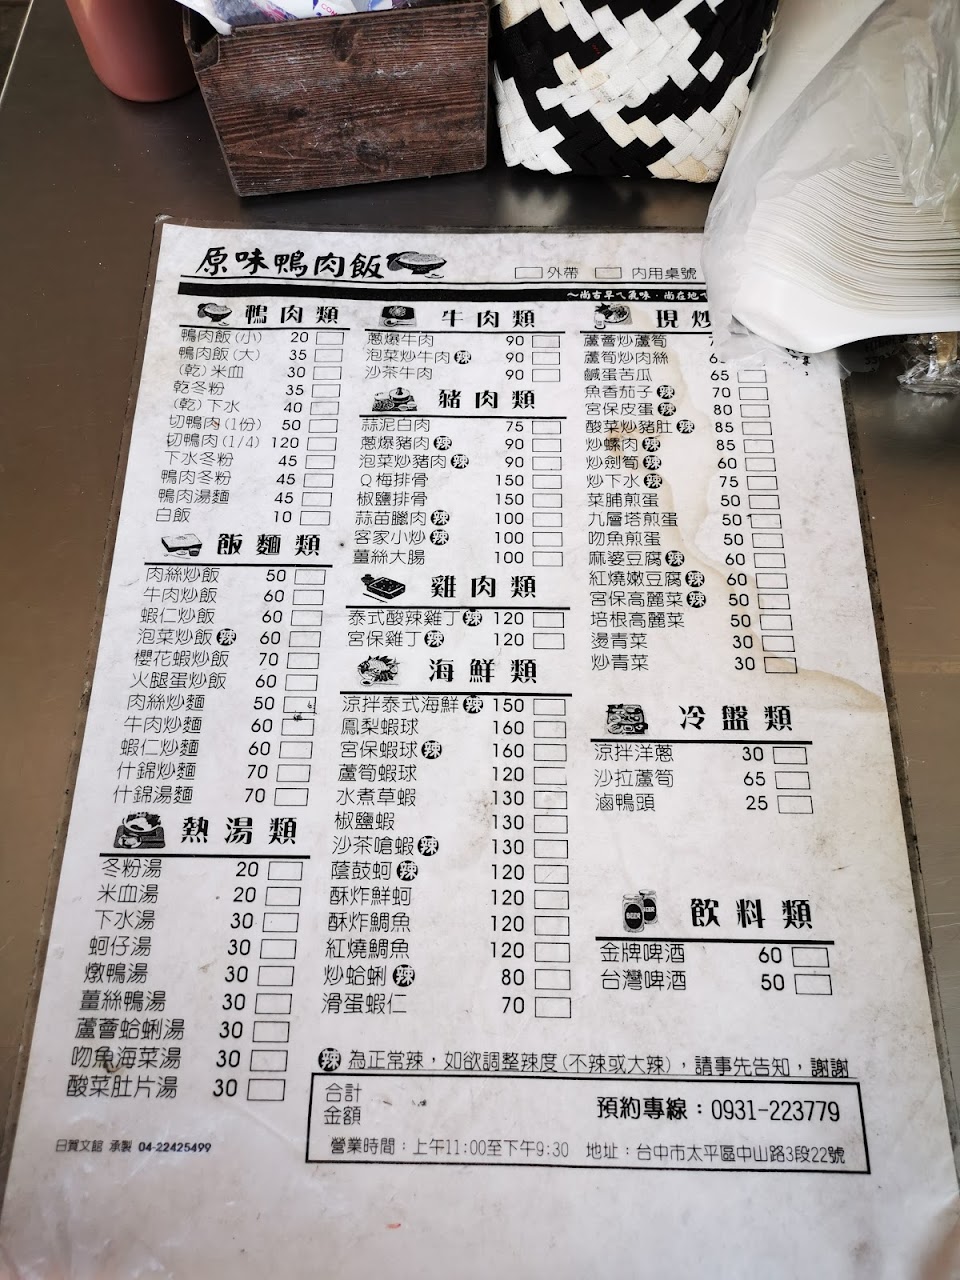 原味鴨肉飯
外帶 內用桌號
～尚古早ㄟ氣味·尚在地ㄟ
鴨肉類
鴨肉飯(小) 20
鴨肉飯(大) 35
(乾)米血 30
乾冬粉 35
(乾)下水 40
切鴨肉(1份) 50
切鴨肉(1/4) 120
下水冬粉 45
鴨肉冬粉 45
鴨肉湯麵 45
白飯 10
飯麵類
肉絲炒飯 50
牛肉炒飯 60
蝦仁炒飯 60
泡菜炒飯 辣 60
櫻花蝦炒飯 70
火腿蛋炒飯 60
肉絲炒麵 50
牛肉炒麵 60
蝦仁炒麵 60
什錦炒麵 70
什錦湯麵 70
熱湯類
冬粉湯 20
米血湯 20
下水湯 30
蚵仔湯 30
燉鴨湯 30
薑絲鴨湯 30
蘆薈蛤蜊湯 30
吻魚海菜湯 30
酸菜肚片湯 30
牛肉類
蔥爆牛肉 90
泡菜炒牛肉 辣 90
沙茶牛肉 90
豬肉類
蒜泥白肉 75
蔥爆豬肉 辣 90
泡菜炒豬肉 辣 90
Q梅排骨 150
椒鹽排骨 150
蒜苗臘肉 辣 100
客家小炒 辣 100
薑絲大腸 100
雞肉類
泰式酸辣雞丁 辣 120
宮保雞丁 辣 120
海鮮類
涼拌泰式海鮮 辣 150
鳳梨蝦球 160
宮保蝦球 辣 160
蘆筍蝦球 120
水煮草蝦 130
椒鹽蝦 130
沙茶嗆蝦 辣 130
蔭鼓蚵 辣 120
酥炸鮮蚵 120
酥炸鯛魚 120
紅燒鯛魚 120
炒蛤蜊 辣 80
滑蛋蝦仁 70
現炒
蘆薈炒蘆筍
蘆筍炒肉絲
鹹蛋苦瓜 65
魚香茄子 辣 70
宮保皮蛋 辣 80
酸菜炒豬肚 辣 85
炒螺肉 辣 85
炒劍筍 辣 60
炒下水 辣 75
菜脯煎蛋 50
九層塔煎蛋 50
吻魚煎蛋 50
麻婆豆腐 辣 60
紅燒嫩豆腐 辣 60
宮保高麗菜 辣 50
培根高麗菜 50
燙青菜 30
炒青菜 30
冷盤類
涼拌洋蔥 30
沙拉蘆筍 65
滷鴨頭 25
飲料類
金牌啤酒 60
台灣啤酒 50
辣 為正常辣，如欲調整辣度(不辣或大辣)，請事先告知，謝謝
合計
金額
預約專線：0931-223779
營業時間：上午11:00至下午9:30 地址：台中市太平區中山路3段22號
日賀文館 承製 04-22425499